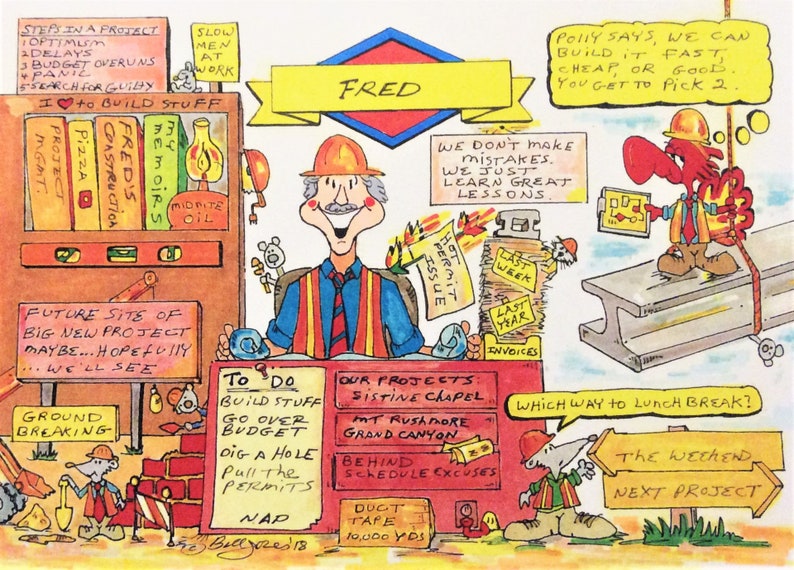 STEPS IN A PROJECT
1 OPTIMISM
2 DELAYS
3 BUDGET OVERUNS
4 PANIC
5 SEARCH FOR GUILTY
SLOW
MEN
AT
WORK
I ❤ to BUILD STUFF
PROJECT
MGMT.
PIZZA
FRED'S
CONSTRUCTION
MY
MEMOIRS
MIDNITE
OIL
FRED
POLLY SAYS, WE CAN
BUILD IT FAST,
CHEAP, OR GOOD.
YOU GET TO PICK 2.
WE DON'T MAKE
MISTAKES.
WE JUST
LEARN GREAT
LESSONS.
HOT
PERMIT
ISSUE
LAST
WEEK
LAST
YEAR
INVOICES
FUTURE SITE OF
BIG NEW PROJECT
MAYBE...HOPEFULLY
... WE'LL SEE
GROUND
BREAKING
TO DO
BUILD STUFF
GO OVER
BUDGET
DIG A HOLE
PULL THE
PERMITS
NAP
OUR PROJECTS:
SISTINE CHAPEL
MT RUSHMORE
GRAND CANYON
BEHIND
SCHEDULE EXCUSES
DUCT
TAPE
10,000 YDS
WHICH WAY TO LUNCH BREAK?
THE WEEKEND
NEXT PROJECT
'18